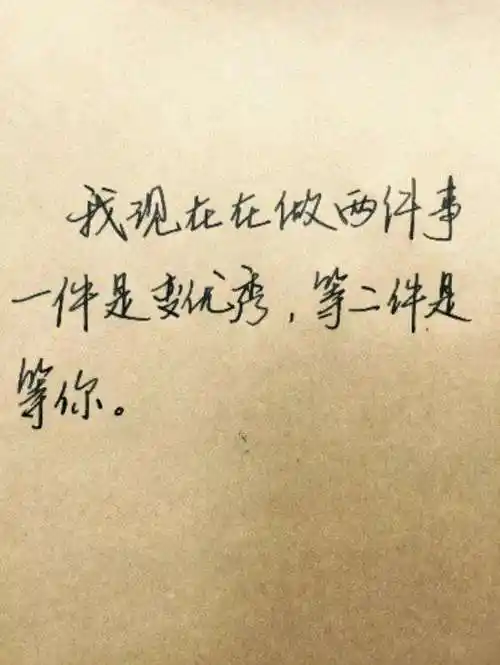 我现在在做两件事
一件是变优秀,等二件是
等你。